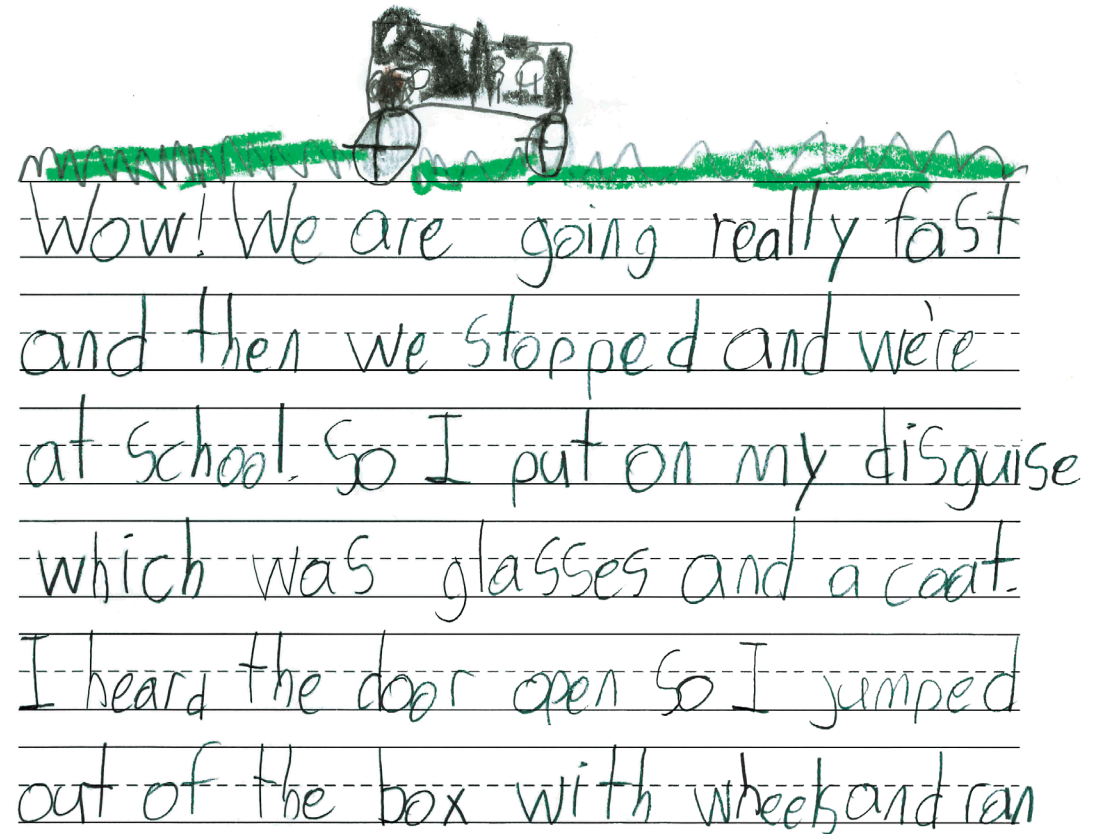 Wow! We are going really fast
and then we stopped and we're
at school. So I put on my disguise
which was glasses and a coat.
I heard the door open so I jumped
out of the box with wheels and ran